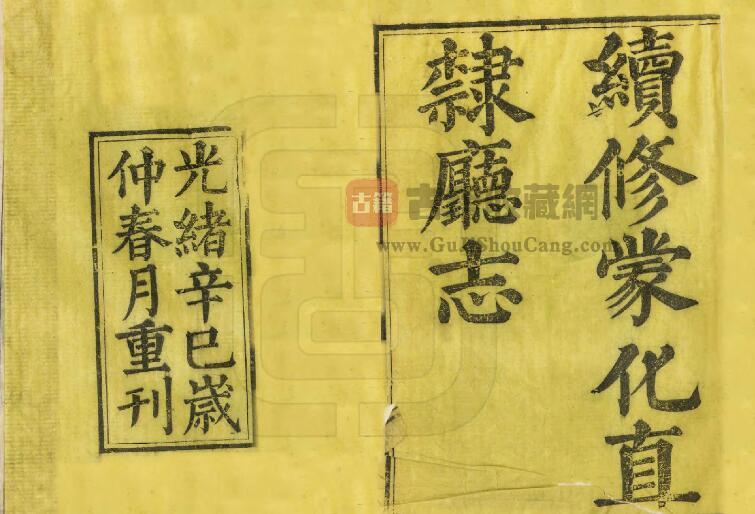 續修蒙化直
隸廳志
光緒辛巳歲
仲春月重刊
古籍
藏網
www.Gu
ShouCang.com